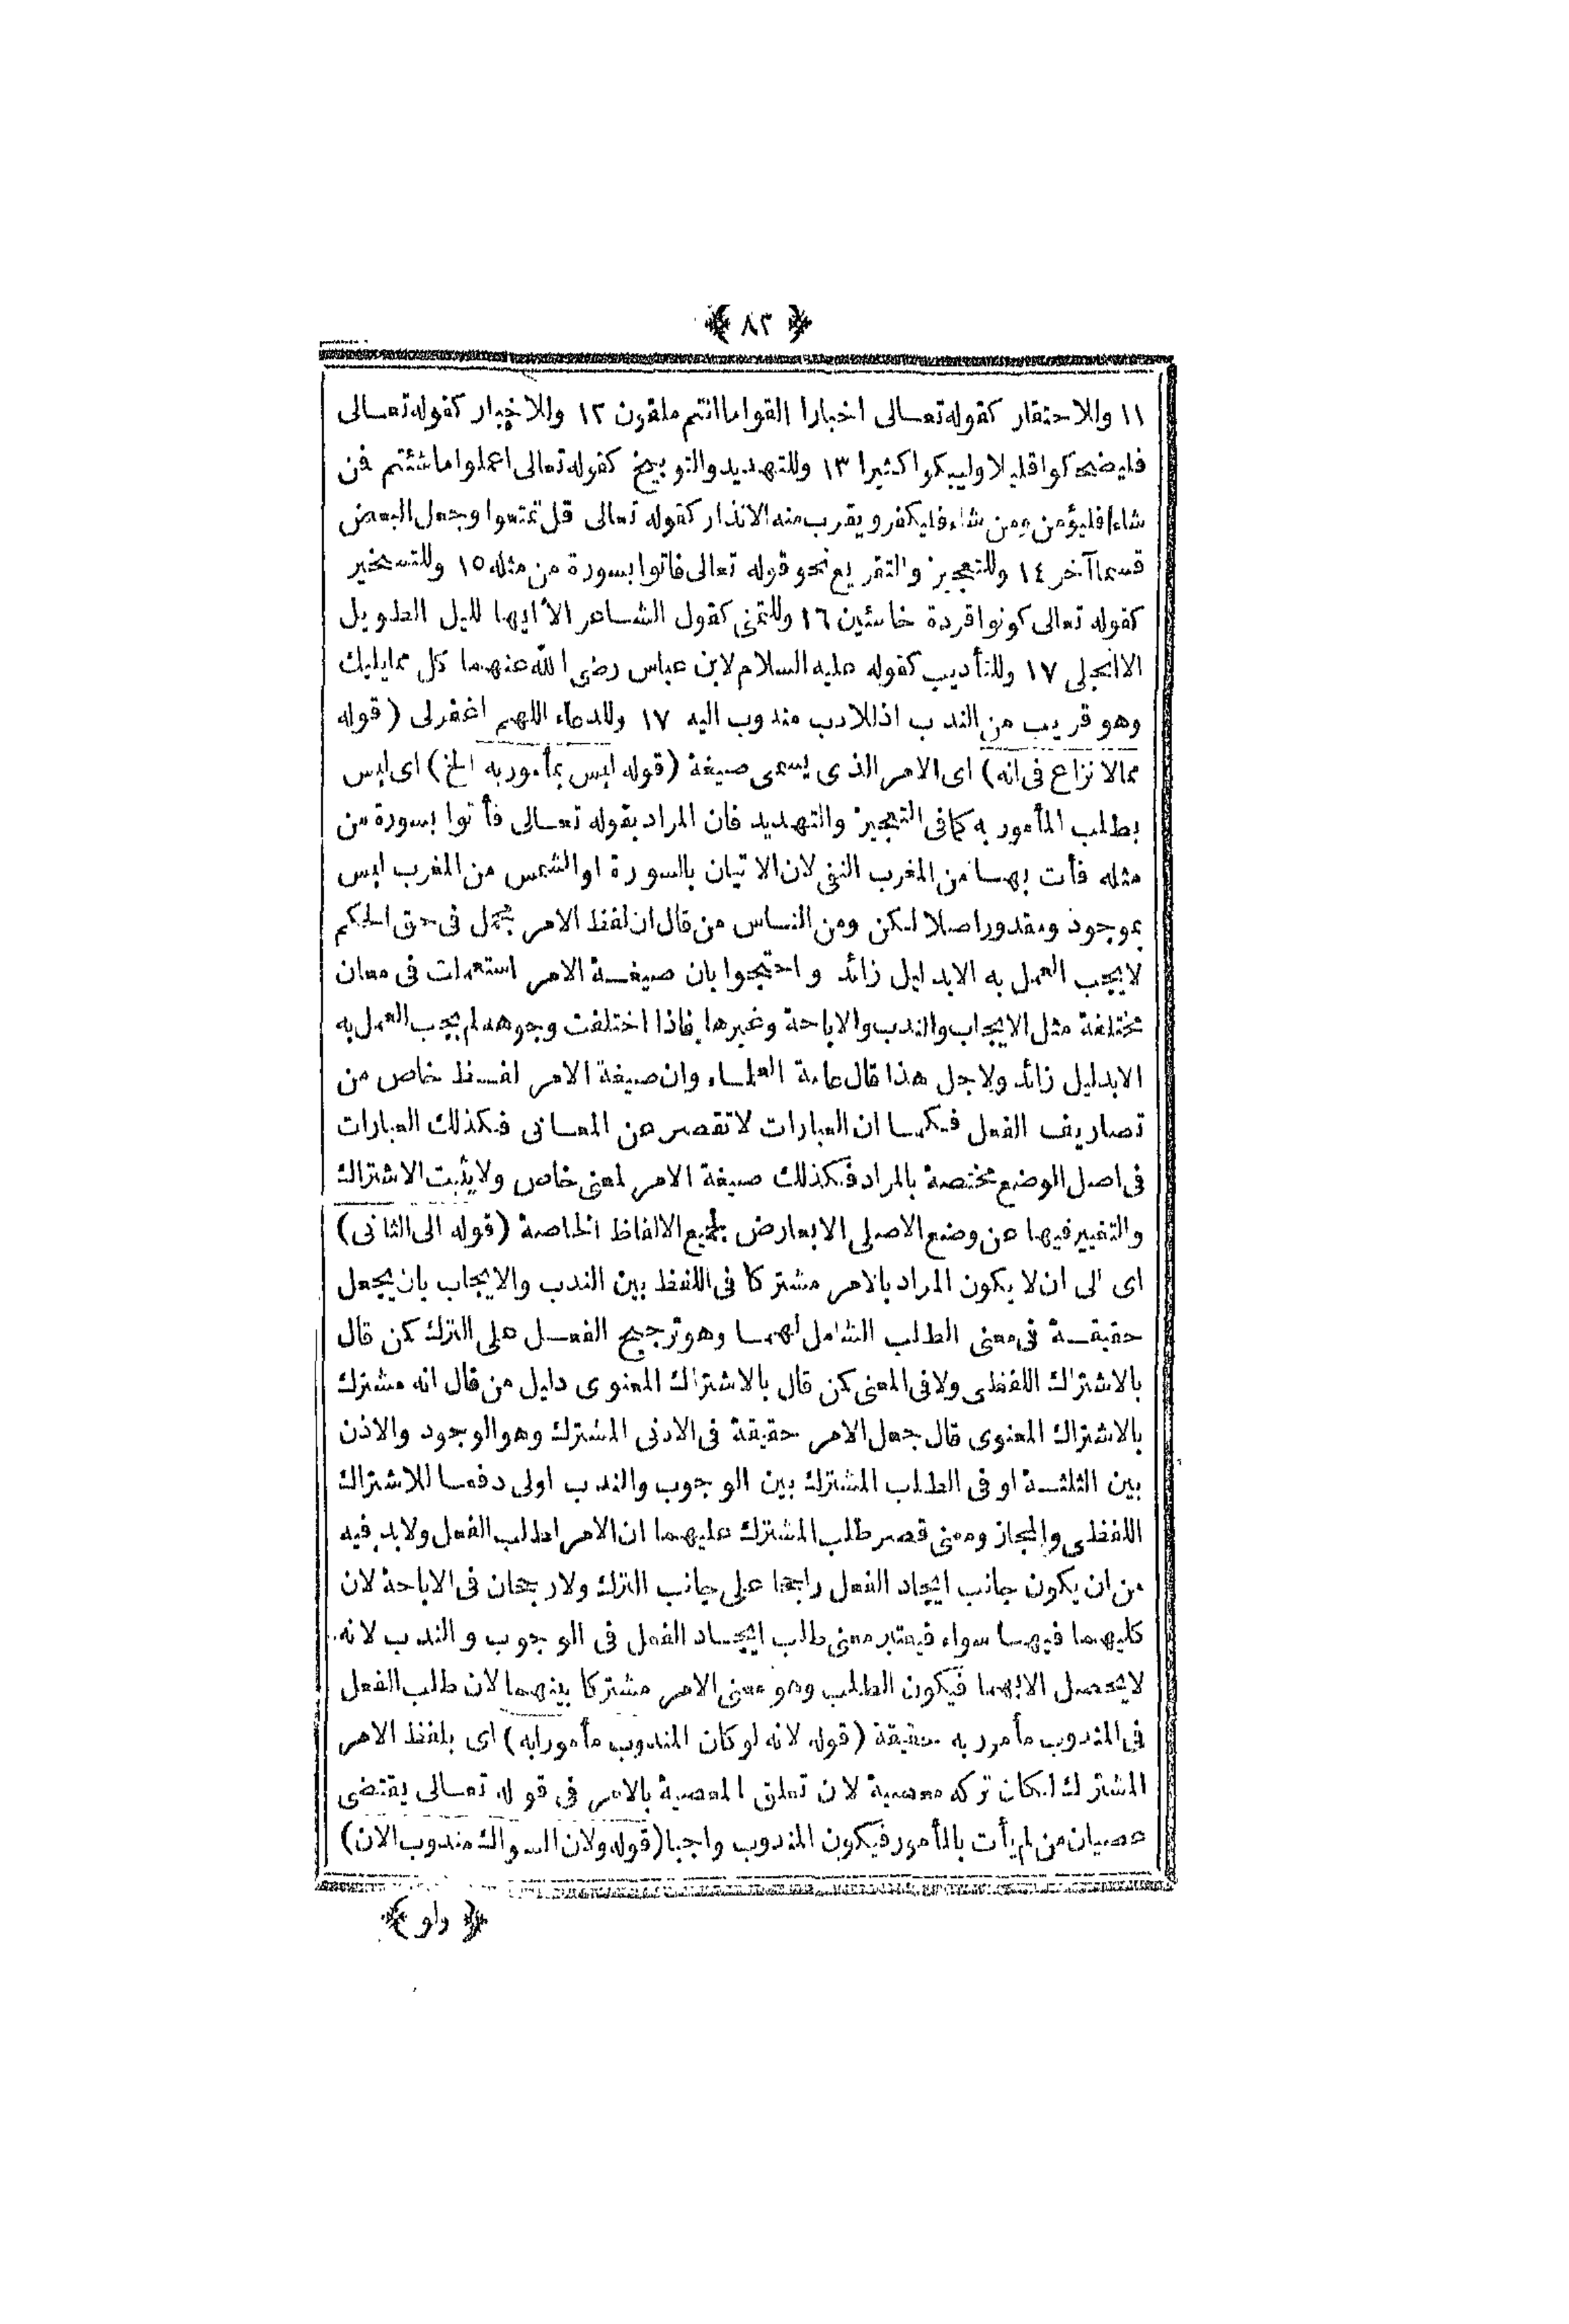 ﴿ ٨٢ ﴾
١١ وللاحتقار كقوله تعالى اخبارا القوا ما انتم ملقون ١٢ وللاخبار كقوله تعالى
فليضحكوا قليلا وليبكوا كثيرا ١٣ وللتهديد والتوبيخ كقوله تعالى اعملوا ما شئتم فمن
شاء فليؤمن ومن شاء فليكفر ويقرب منه الانذار كقوله تعالى قل تمتعوا وجعل البعض
قسما آخر ١٤ وللتعجيز والتقريع نحو قوله تعالى فاتوا بسورة من مثله ١٥ وللتسخير
كقوله تعالى كونوا قردة خاسئين ١٦ وللتمنى كقول الشاعر الا ايها لليل الطويل
الا انجلى ١٧ وللتأديب كقوله عليه السلام لابن عباس رضى الله عنهما كل مما يليك
وهو قريب من الندب اذ للادب مندوب اليه ١٧ وللدعاء اللهم اغفرلى (قوله
مما لا نزاع فى انه) اى الامر الذى يسمى صيغة (قوله ليس بمأمور به الخ) اى ليس
بطلب المأمور به كما فى التعجيز والتهديد فان المراد بقوله تعالى فأتوا بسورة من
مثله فأت بها من المغرب النفى لان الاتيان بالسورة او الشمس من المغرب ليس
بموجود ومقدور اصلا لكن ومن الناس من قال ان لفظ الامر مجمل فى حق الحكم
لا يجب العمل به الا بدليل زائد واحتجوا بان صيغة الامر استعملت فى معان
مختلفة مثل الايجاب والندب والاباحة وغيرها فاذا اختلفت وجوهه لم يجب العمل به
الا بدليل زائد ولاجل هذا قال عامة العلماء وان صيغة الامر لفظ خاص من
تصاريف الفعل فكما ان العبارات لا تقصر عن المعانى فكذلك العبارات
فى اصل الوضع مختصة بالمراد فكذلك صيغة الامر لمعنى خاص ولا يثبت الاشتراك
والتغيير فيها عن وضع الاصلى الا بعارض بجميع الالفاظ الخاصة (قوله الى الثانى)
اى الى ان لا يكون المراد بالامر مشتركا فى اللفظ بين الندب والايجاب بان يجعل
حقيقة فى معنى الطلب الشامل لهما وهو ترجيح الفعل على الترك كمن قال
بالاشتراك اللفظى ولا فى المعنى كمن قال بالاشتراك المعنوى دليل من قال انه مشترك
بالاشتراك المعنوى قال جعل الامر حقيقة فى الادنى المشترك وهو الوجود والاذن
بين الثلثة او فى الطلب المشترك بين الوجوب والندب اولى دفعا للاشتراك
اللفظى والمجاز ومعنى قصر طلب المشترك عليهما ان الامر لطلب الفعل ولابد فيه
من ان يكون جانب ايجاد الفعل راجحا على جانب الترك ولا رجحان فى الاباحة لان
كليهما فيها سواء فيعتبر معنى طلب ايجاد الفعل فى الوجوب والندب لانه
لا يحصل الا بهما فيكون الطلب وهو معنى الامر مشتركا بينهما لان طلب الفعل
فى المندوب مأمور به حقيقة (قوله لانه لو كان المندوب مأمورا به) اى بلفظ الامر
المشترك لكان تركه معصية لان تعلق المعصية بالامر فى قوله تعالى يقتضى
عصيان من لم يأت بالمأمور فيكون المندوب واجبا (قوله ولان السواك مندوب الان)
﴿ ولو ﴾